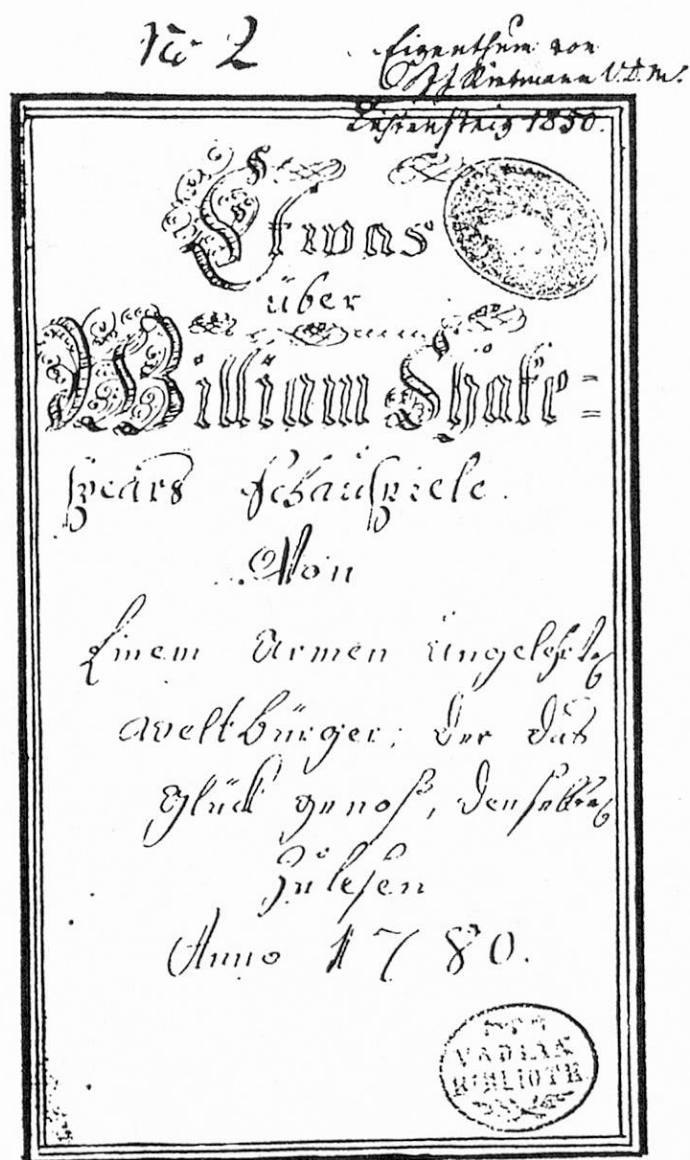 No 2
Eigenthum von
Rietmann V.D.M.
Lichtensteig 1850.
Etwas
über
William Shake=
spears Schauspiele.
Von
Einem Armen Ungelehrten
Weltbürger, Der das
Glück genoß, denselben
Zulesen
Anno 1780.
BIBLIOTH